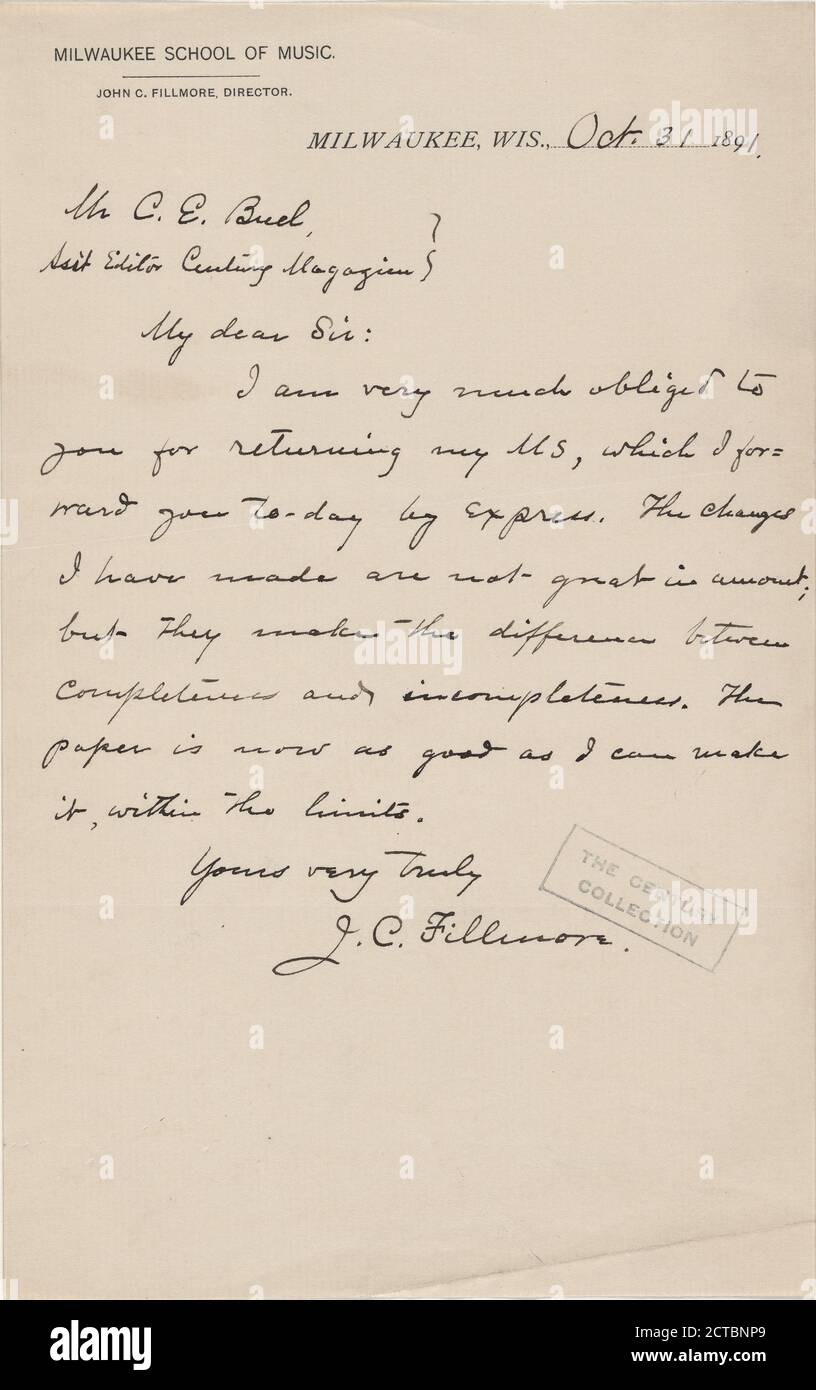 MILWAUKEE SCHOOL OF MUSIC.
JOHN C. FILLMORE, DIRECTOR.
MILWAUKEE, WIS., Oct. 31 1891.
Mr C. E. Buel,
Asst Editor Century Magazine }
My dear Sir:
I am very much obliged to
you for returning my MS, which I for=
ward you to-day by express. The changes
I have made are not great in amount;
but they make the difference between
completeness and incompleteness. The
paper is now as good as I can make
it, within the limits.
Yours very truly
J. C. Fillmore.
THE CENTURY
COLLECTION
alamy
Image ID: 2CTBNP9
www.alamy.com